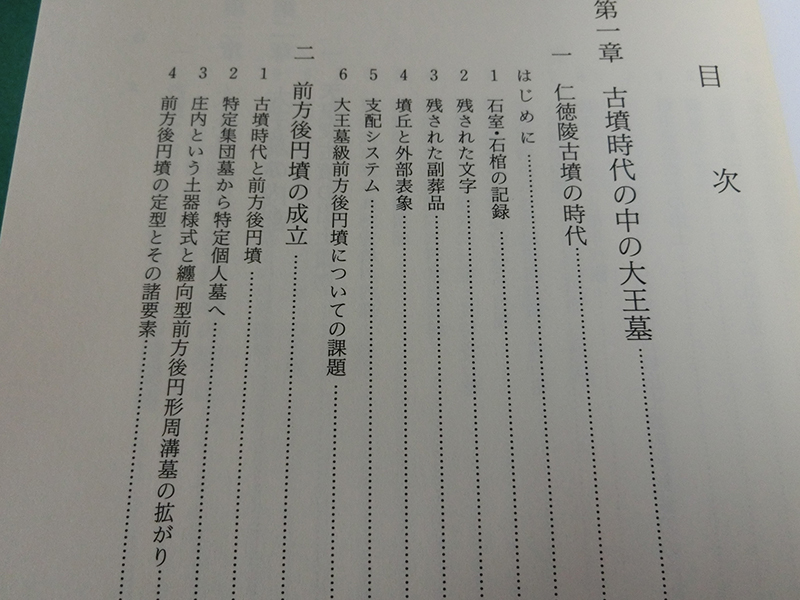 目次
第一章　古墳時代の中の大王墓
一　仁徳陵古墳の時代
はじめに
1　石室・石棺の記録
2　残された文字
3　残された副葬品
4　墳丘と外部表象
5　支配システム
6　大王墓級前方後円墳についての課題
二　前方後円墳の成立
1　古墳時代と前方後円墳
2　特定集団墓から特定個人墓へ
3　庄内という土器様式と纏向型前方後円形周溝墓の拡がり
4　前方後円墳の定型とその諸要素